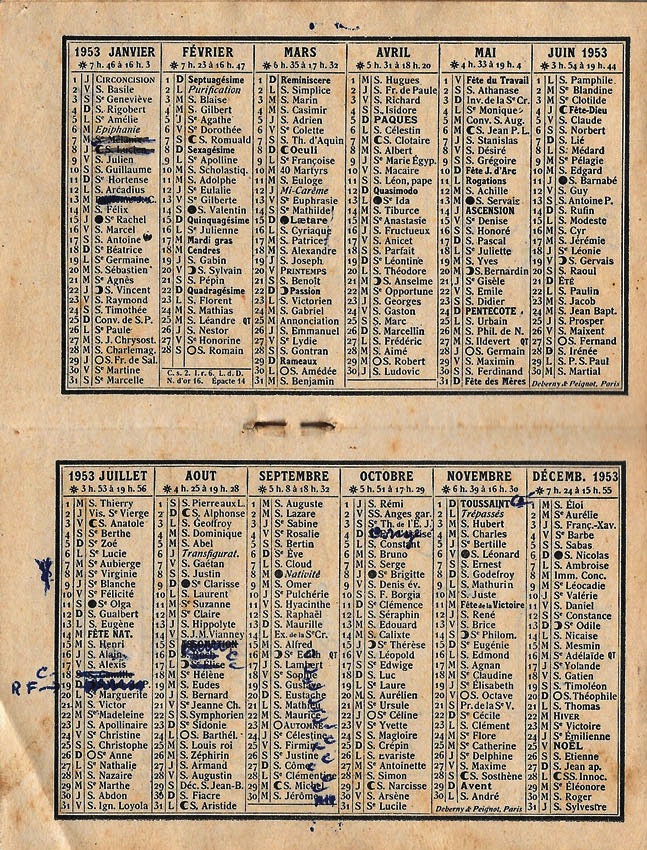 1953 JANVIER
7 h. 46 à 16 h. 3
1 J CIRCONCISION
2 V S. Basile
3 S Sᵉ Geneviève
4 D S. Rigobert
5 L Sᵉ Amélie
6 M Epiphanie
7 M Sᵉ Mélanie
8 J S. Lucien
9 V S. Julien
10 S S. Guillaume
11 D Sᵉ Hortense
12 L S. Arcadius
13 M
14 M S. Félix
15 J Sᵉ Rachel
16 V S. Marcel
17 S S. Antoine
18 D Sᵉ Béatrice
19 L Sᵉ Germaine
20 M S. Sébastien
21 M Sᵉ Agnès
22 J S. Vincent
23 V S. Raymond
24 S S. Timothée
25 D Conv. de S.P.
26 L Sᵉ Paule
27 M S. J. Chrysost.
28 M S. Charlemag.
29 J S. Fr. de Sal.
30 V Sᵉ Martine
31 S Sᵉ Marcelle
FÉVRIER
7 h. 23 à 16 h. 47
1 D Septuagésime
2 L Purification
3 M S. Blaise
4 M S. Gilbert
5 J Sᵉ Agathe
6 V Sᵉ Dorothée
7 S S. Romuald
8 D Sexagésime
9 L Sᵉ Apolline
10 M Sᵉ Scholastiq.
11 M S. Adolphe
12 J Sᵉ Eulalie
13 V Sᵉ Gilberte
14 S S. Valentin
15 D Quinquagésime
16 L Sᵉ Julienne
17 M Mardi gras
18 M Cendres
19 J S. Gabin
20 V S. Sylvain
21 S S. Pépin
22 D Quadragésime
23 L S. Florent
24 M S. Mathias
25 M S. Léandre QT
26 J S. Nestor
27 V Sᵉ Honorine
28 S S. Romain
C. s. 2. l. r. 6. L. d. D.
N. d'or 16. Épacte 14
MARS
6 h. 35 à 17 h. 32
1 D Reminiscere
2 L S. Simplice
3 M S. Marin
4 M S. Casimir
5 J S. Adrien
6 V Sᵉ Colette
7 S S. Th. d'Aquin
8 D Oculi
9 L Sᵉ Françoise
10 M 40 Martyrs
11 M S. Euloge
12 J Mi-Carême
13 V Sᵉ Euphrasie
14 S Sᵉ Mathilde
15 D Lætare
16 L S. Cyriaque
17 M S. Patrice
18 M S. Alexandre
19 J S. Joseph
20 V PRINTEMPS
21 S S. Benoît
22 D Passion
23 L S. Victorien
24 M S. Gabriel
25 M Annonciation
26 J S. Emmanuel
27 V Sᵉ Lydie
28 S S. Gontran
29 D Rameaux
30 L S. Amédée
31 M S. Benjamin
AVRIL
5 h. 31 à 18 h. 20
1 M S. Hugues
2 J S. Fr. de Paule
3 V S. Richard
4 S S. Isidore
5 D PAQUES
6 L S. Célestin
7 M S. Clotaire
8 M S. Albert
9 J Sᵉ Marie Égyp.
10 V S. Macaire
11 S S. Léon, pape
12 D Quasimodo
13 L Sᵉ Ida
14 M S. Tiburce
15 M Sᵉ Anastasie
16 J S. Fructueux
17 V S. Anicet
18 S S. Parfait
19 D Sᵉ Léontine
20 L S. Théodore
21 M S. Anselme
22 M Sᵉ Opportune
23 J S. Georges
24 V S. Gaston
25 S S. Marc
26 D S. Marcellin
27 L S. Frédéric
28 M S. Aimé
29 M S. Robert
30 J S. Ludovic
MAI
4 h. 33 à 19 h. 4
1 V Fête du Travail
2 S S. Athanase
3 D Inv. de la Sᵉ Cr.
4 L Sᵉ Monique
5 M Conv. S. Aug.
6 M S. Jean P. L.
7 J S. Stanislas
8 V S. Désiré
9 S S. Grégoire
10 D Fête J. d'Arc
11 L Rogations
12 M S. Achille
13 M S. Servais
14 J ASCENSION
15 V Sᵉ Denise
16 S S. Honoré
17 D S. Pascal
18 L Sᵉ Juliette
19 M S. Yves
20 M S. Bernardin
21 J Sᵉ Gisèle
22 V S. Emile
23 S S. Didier
24 D PENTECOTE
25 L S. Urbain
26 M S. Phil. de N.
27 M S. Ildevert QT
28 J S. Germain
29 V S. Maximin
30 S S. Ferdinand
31 D Fête des Mères
JUIN 1953
3 h. 54 à 19 h. 44
1 L S. Pamphile
2 M Sᵉ Blandine
3 M Sᵉ Clotilde
4 J Fête-Dieu
5 V S. Claude
6 S S. Norbert
7 D S. Lié
8 L S. Médard
9 M Sᵉ Pélagie
10 M S. Edgard
11 J S. Barnabé
12 V S. Guy
13 S S. Antoine P.
14 D S. Rufin
15 L S. Modeste
16 M S. Cyr
17 M S. Jérémie
18 J Sᵉ Léonie
19 V S. Gervais
20 S S. Raoul
21 D ÉTÉ
22 L S. Paulin
23 M S. Jacob
24 M S. Jean Bapt.
25 J S. Prosper
26 V S. Maixent
27 S S. Fernand
28 D S. Irénée
29 L S. P. S. Paul
30 M S. Martial
Deberny & Peignot, Paris
1953 JUILLET
3 h. 53 à 19 h. 56
1 M S. Thierry
2 J Vis. Sᵉ Vierge
3 V S. Anatole
4 S Sᵉ Berthe
5 D Sᵉ Zoé
6 L Sᵉ Lucie
7 M Sᵉ Aubierge
8 M Sᵉ Virginie
9 J Sᵉ Blanche
10 V Sᵉ Félicité
11 S Sᵉ Olga
12 D S. Gualbert
13 L S. Eugène
14 M FÊTE NAT.
15 M S. Henri
16 J S. Alain
17 V S. Alexis
C
18 S S. Camille
R F
19 D
20 L Sᵉ Marguerite
21 M S. Victor
22 M Sᵉ Madeleine
23 J S. Apollinaire
24 V Sᵉ Christine
25 S S. Christophe
26 D Sᵉ Anne
27 L Sᵉ Nathalie
28 M S. Nazaire
29 M Sᵉ Marthe
30 J S. Abdon
31 V S. Ign. Loyola
AOUT
4 h. 25 à 19 h. 28
1 S S. Pierre aux L.
2 D S. Alphonse
3 L S. Geoffroy
4 M S. Dominique
5 M S. Abel
6 J Transfigurat.
7 V S. Gaétan
8 S S. Justin
9 D Sᵉ Clarisse
10 L S. Laurent
11 M Sᵉ Suzanne
12 M Sᵉ Claire
13 J S. Hippolyte
14 V S. J. M. Vianney
15 S
16 D
17 L Sᵉ Elise
18 M Sᵉ Hélène
19 M S. Eudes
20 J S. Bernard
21 V Sᵉ Jeanne Ch.
22 S S. Symphorien
23 D S. Sidonie
24 L S. Barthél.
25 M S. Louis roi
26 M S. Zéphirin
27 J S. Armand
28 V S. Augustin
29 S Déc. S. Jean-B.
30 D S. Fiacre
31 L S. Aristide
SEPTEMBRE
5 h. 8 à 18 h. 32
1 M S. Auguste
2 M S. Lazare
3 J Sᵉ Sabine
4 V Sᵉ Rosalie
5 S S. Bertin
6 D Sᵉ Ève
7 L S. Cloud
8 M Nativité
9 M S. Omer
10 J Sᵉ Pulchérie
11 V S. Hyacinthe
12 S S. Raphaël
13 D S. Maurille
14 L Ex. de la Sᵉ Cr.
15 M S. Alfred
16 M Sᵉ Edith QT
17 J S. Lambert
18 V Sᵉ
19 S S.
20 D S. Eustache
21 L S.
22 M S.
23 M AUTOMNE
24 J Sᵉ Célestine
25 V S. Firmin
26 S Sᵉ Justine
27 D S. Côme
28 L S. Clément
29 M S. Michel
30 M S. Jérôme
OCTOBRE
5 h. 51 à 17 h. 29
1 J S. Rémi
2 V SS. Anges gar.
3 S Sᵉ Th. de l'E. J.
4 D
5 L S. Constant
6 M S. Bruno
7 M S. Serge
8 J Sᵉ Brigitte
9 V S. Denis év.
10 S S. F. Borgia
11 D Sᵉ Clémence
12 L S. Séraphin
13 M S. Edouard
14 M S. Calixte
15 J Sᵉ Thérèse
16 V S. Léopold
17 S Sᵉ Edwige
18 D S. Luc
19 L Sᵉ Laure
20 M S. Aurélien
21 M Sᵉ Ursule
22 J Sᵉ Céline
23 V Sᵉ Yvette
24 S S. Magloire
25 D S. Crépin
26 L S. Evariste
27 M Sᵉ Antoinette
28 M S. Simon
29 J S. Narcisse
30 V S. Arsène
31 S Sᵉ Lucile
NOVEMBRE
6 h. 39 à 16 h. 30
1 D TOUSSAINT
2 L Trépassés
3 M S. Hubert
4 M S. Charles
5 J Sᵉ Bertille
6 V S. Léonard
7 S S. Ernest
8 D S. Godefroy
9 L S. Mathurin
10 M S. Juste
11 M Fête de la Victoire
12 J S. René
13 V S. Brice
14 S Sᵉ Philom.
15 D Sᵉ Eugénie
16 L S. Edmond
17 M S. Agnan
18 M Sᵉ Claudine
19 J Sᵉ Élisabeth
20 V S. Octave
21 S Pr. de la Sᵉ V.
22 D Sᵉ Cécile
23 L S. Clément
24 M Sᵉ Flore
25 M Sᵉ Catherine
26 J Sᵉ Delphine
27 V S. Maxime
28 S S. Sosthène
29 D Avent
30 L S. André
Deberny & Peignot, Paris
DÉCEMB. 1953
7 h. 24 à 15 h. 55
1 M S. Éloi
2 M Sᵉ Aurélie
3 J S. Franç.-Xav.
4 V Sᵉ Barbe
5 S S. Sabas
6 D S. Nicolas
7 L S. Ambroise
8 M Imm. Conc.
9 M Sᵉ Léocadie
10 J Sᵉ Valérie
11 V S. Daniel
12 S Sᵉ Constance
13 D Sᵉ Odile
14 L S. Nicaise
15 M S. Mesmin
16 M Sᵉ Adélaïde QT
17 J Sᵉ Yolande
18 V S. Gatien
19 S S. Timoléon
20 D S. Théophile
21 L S. Thomas
22 M HIVER
23 M Sᵉ Victoire
24 J Sᵉ Émilienne
25 V NOËL
26 S S. Etienne
27 D S. Jean ap.
28 L SS. Innoc.
29 M Sᵉ Éléonore
30 M S. Roger
31 J S. Sylvestre